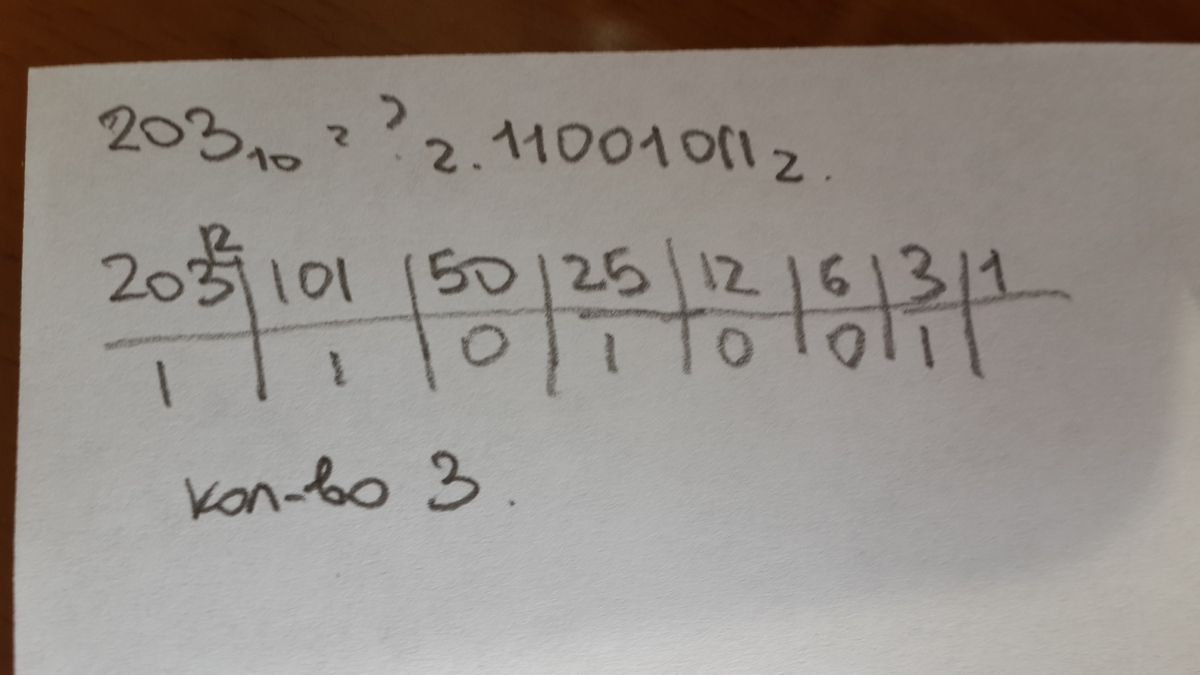 203₁₀ = ?₂. 11001011₂.
203 |2 | 101 | 50 | 25 | 12 | 6 | 3 | 1
1 | 1 | 0 | 1 | 0 | 0 | 1 |
кол-во 3.